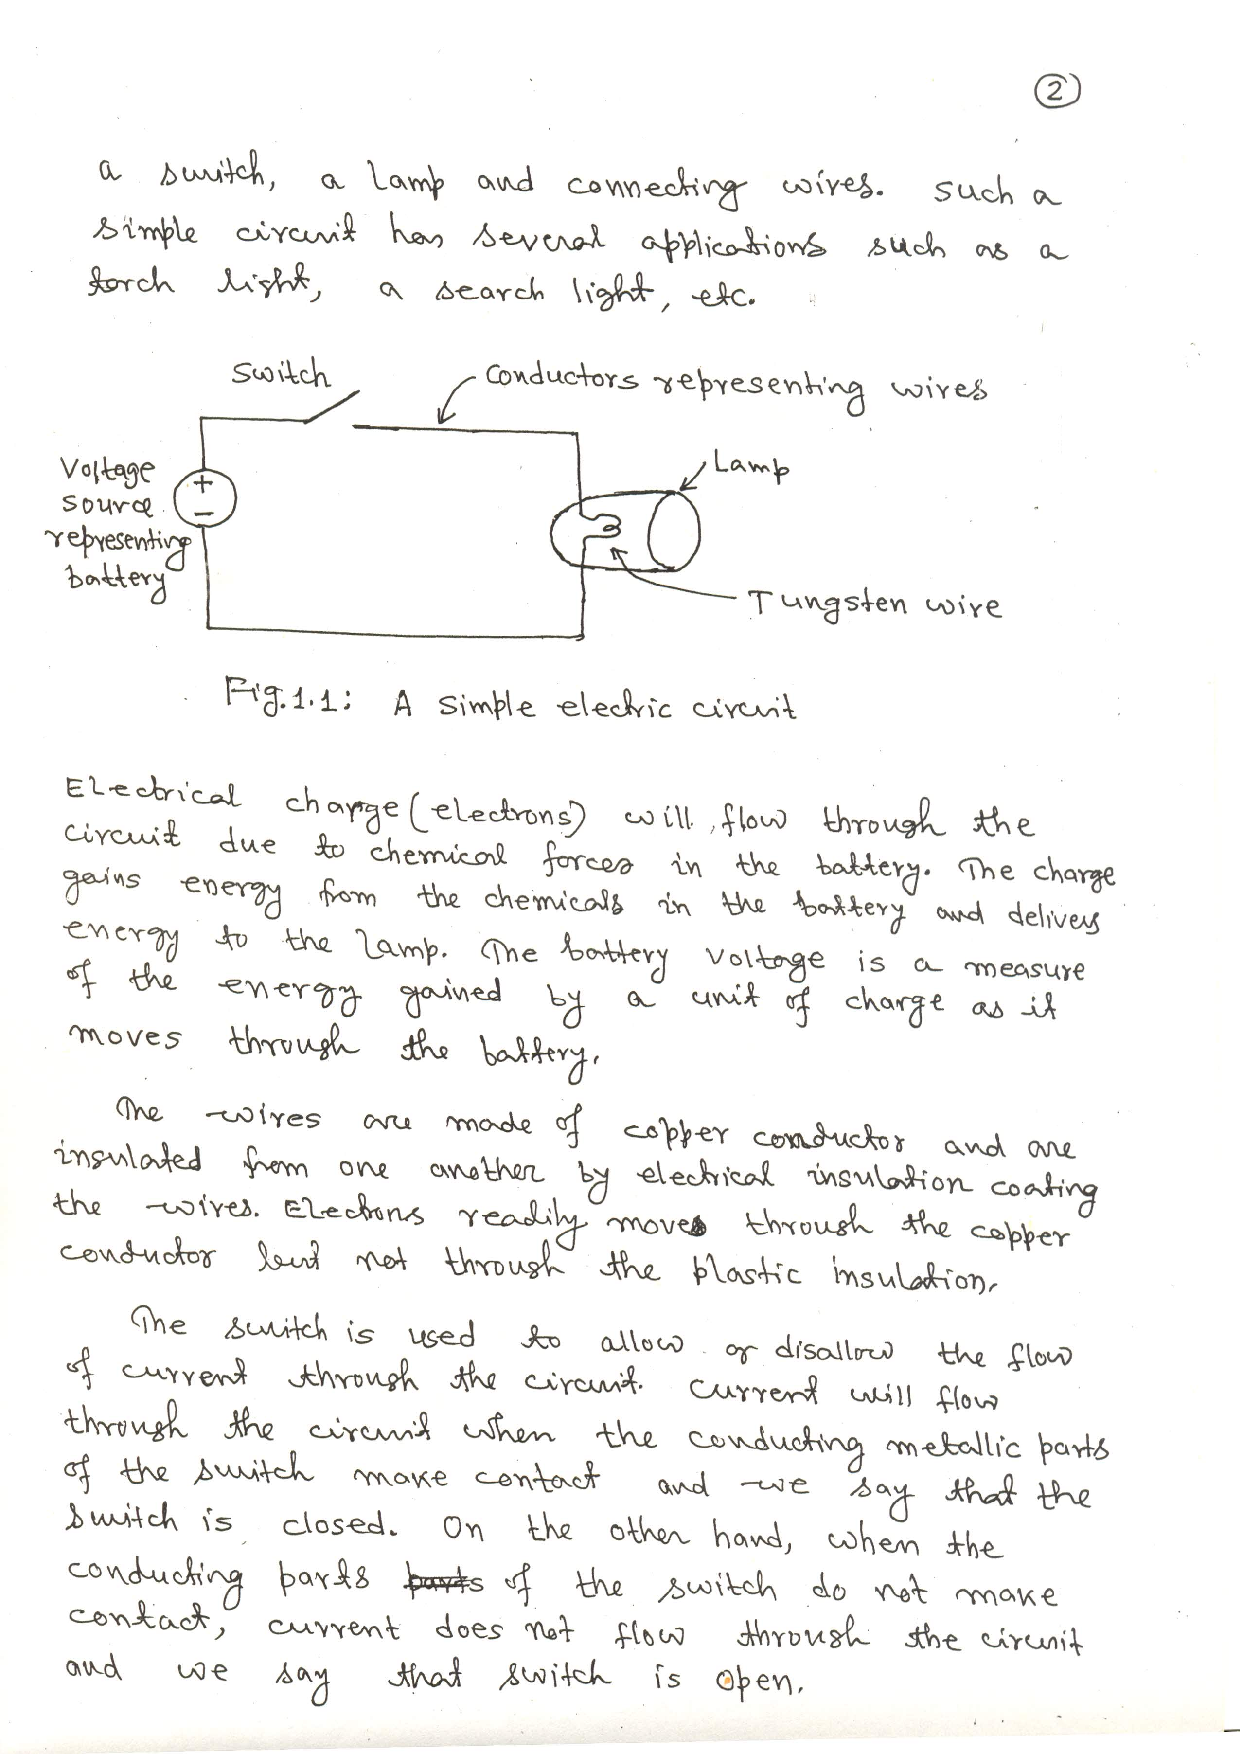 2
a switch, a lamp and connecting wires. such a
simple circuit has several applications such as a
torch light, a search light, etc.
Switch
Conductors representing wires
Lamp
Voltage
source
representing
battery
+
−
Tungsten wire
Fig.1.1: A simple electric circuit
Electrical charge (electrons) will flow through the
circuit due to chemical forces in the battery. The charge
gains energy from the chemicals in the battery and delivers
energy to the lamp. The battery voltage is a measure
of the energy gained by a unit of charge as it
moves through the battery.
The wires are made of copper conductor and are
insulated from one another by electrical insulation coating
the wires. Electrons readily moves through the copper
conductor but not through the plastic insulation.
The switch is used to allow or disallow the flow
of current through the circuit. current will flow
through the circuit when the conducting metallic parts
of the switch make contact and we say that the
switch is closed. On the other hand, when the
conducting parts parts of the switch do not make
contact, current does not flow through the circuit
and we say that switch is open.